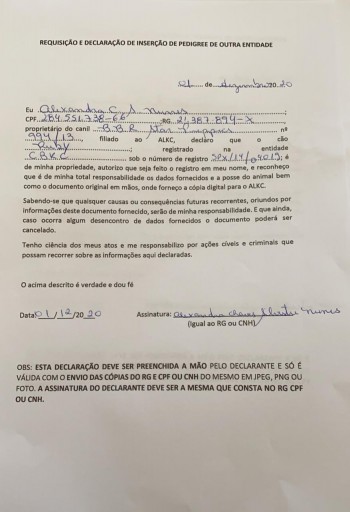 REQUISIÇÃO E DECLARAÇÃO DE INSERÇÃO DE PEDIGREE DE OUTRA ENTIDADE
01 de dezembro 20 20
Eu Alexandra C. S. Nunes
CPF 284.551.738-66 RG 21.387.894-X
proprietário do canil B.B.R. Star Puppies nº
994/13, filiado ao ALKC, declaro que o cão
Ruby; registrado na entidade
C.B.K.C. sob o número de registro SPX/14/04013; é
de minha propriedade, autorizo que seja feito o registro em meu nome, e reconheço
que é de minha total responsabilidade os dados fornecidos e a posse do animal bem
como o documento original em mãos, onde forneço a cópia digital para o ALKC.
Sabendo-se que quaisquer causas ou consequências futuras recorrentes, oriundos por
informações deste documento fornecido, serão de minha responsabilidade. E que ainda,
caso ocorra algum desencontro de dados fornecidos o documento poderá ser
cancelado.
Tenho ciência dos meus atos e me responsabilizo por ações cíveis e criminais que
possam recorrer sobre as informações aqui declaradas.
O acima descrito é verdade e dou fé
Data 01/12/20 20 Assinatura: Alexandra Nunes
(Igual ao RG ou CNH)
OBS: ESTA DECLARAÇÃO DEVE SER PREENCHIDA A MÃO PELO DECLARANTE E SÓ É
VÁLIDA COM O ENVIO DAS CÓPIAS DO RG E CPF OU CNH DO MESMO EM JPEG, PNG OU
FOTO. A ASSINATURA DO DECLARANTE DEVE SER A MESMA QUE CONSTA NO RG CPF
OU CNH.